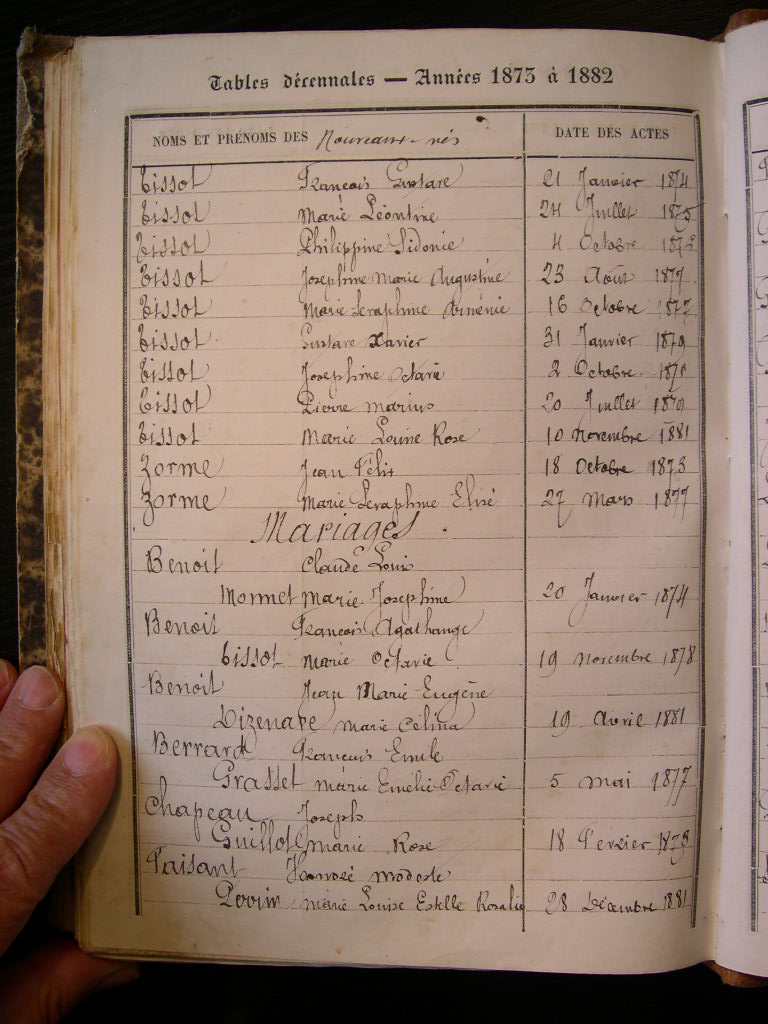 Tables décennales — Années 1873 à 1882
NOMS ET PRÉNOMS DES Nouveaux-nés DATE DES ACTES
Tissot François Gustave 21 Janvier 1874
Tissot Marie Léontine 24 Juillet 1875
Tissot Philippine Sidonie 4 Octobre
Tissot Josephine Marie Augustine 23 Août 1877
Tissot Marie Seraphine Arménie 16 Octobre 1877
Tissot Gustave Xavier 31 Janvier 1879
Tissot Josephine Octavie 2 Octobre
Tissot Pierre Marius 20 Juillet
Tissot Marie Louise Rose 10 novembre 1881
Zorme Jean Félix 18 Octobre 1873
Zorme Marie Seraphine Elisé 27 Mars 1877
Mariages
Benoit Claude Louis
Monnet Marie Josephine 20 Janvier 1874
Benoit François Agathange
Tissot Marie Octavie 19 novembre 1878
Benoit Jean Marie Eugène
Dizenave marie Célina 19 Avril 1881
Berrard François Emile
Grasset marie Emélie Octavie 5 mai 1877
Chapeau Joseph
Guillot marie Rose 18 Février 1873
Paisant Honoré modeste
Perrin marie Louise Estelle Rosalie 28 Décembre 1881